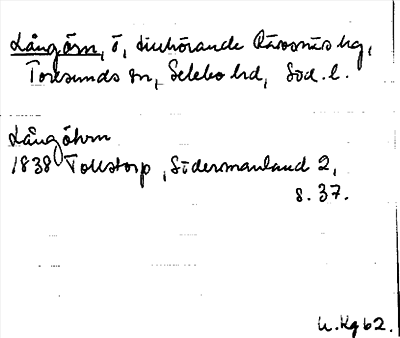 Långörn, ö, tillhörande Räfsnäs hg,
Toresunds sn, Selebo hd, Söd. l.
Långöhrn
1838 Tollstorp, Södermanland 2,
s. 37.
u. Kg 62.